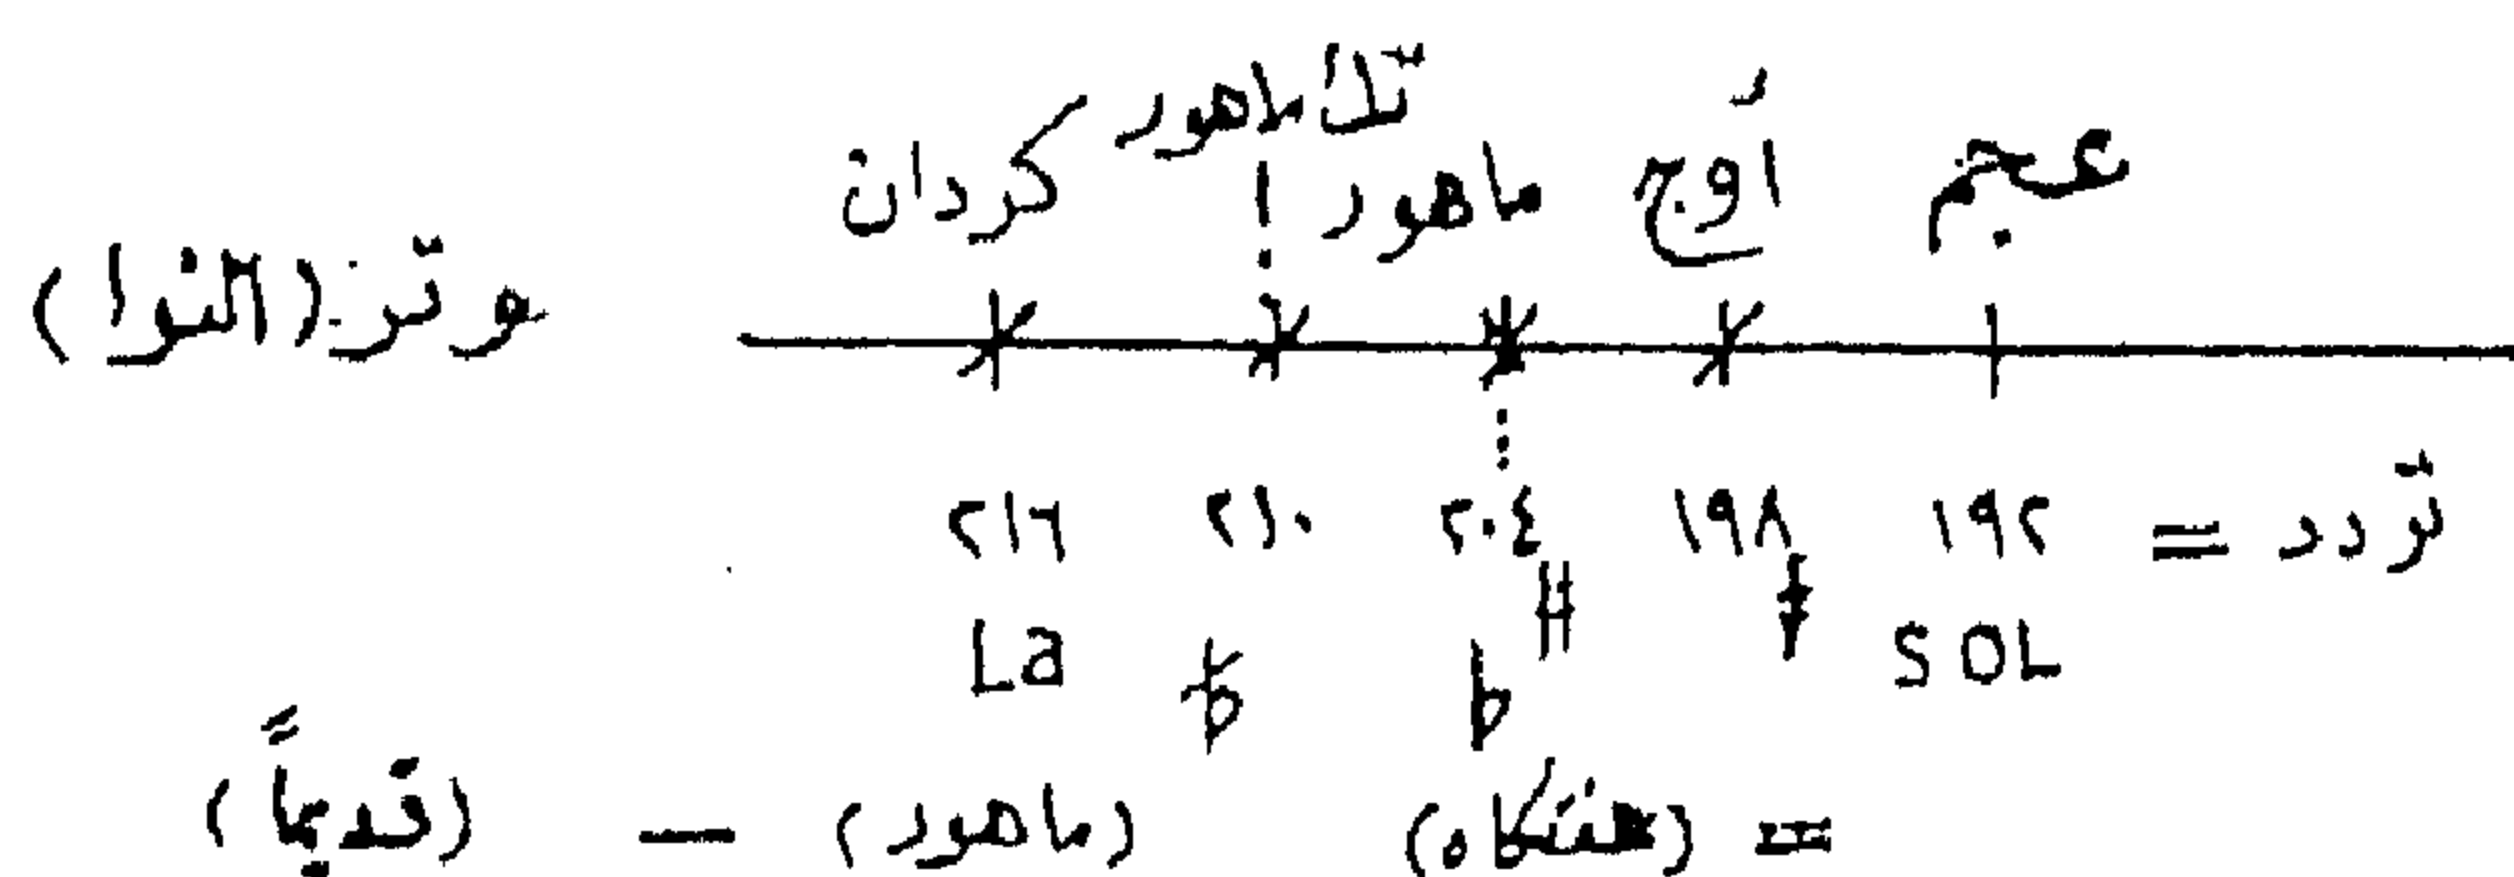 تك ماهور
عجم أوج ماهور كردان
وتر (النوا)
تردد = ١٩٢ ١٩٨ ٢٠٤ ٢١٠ ٢١٦
SOL ǂ # b b La
= (هفتكاه) (ماهور) — (قديماً)